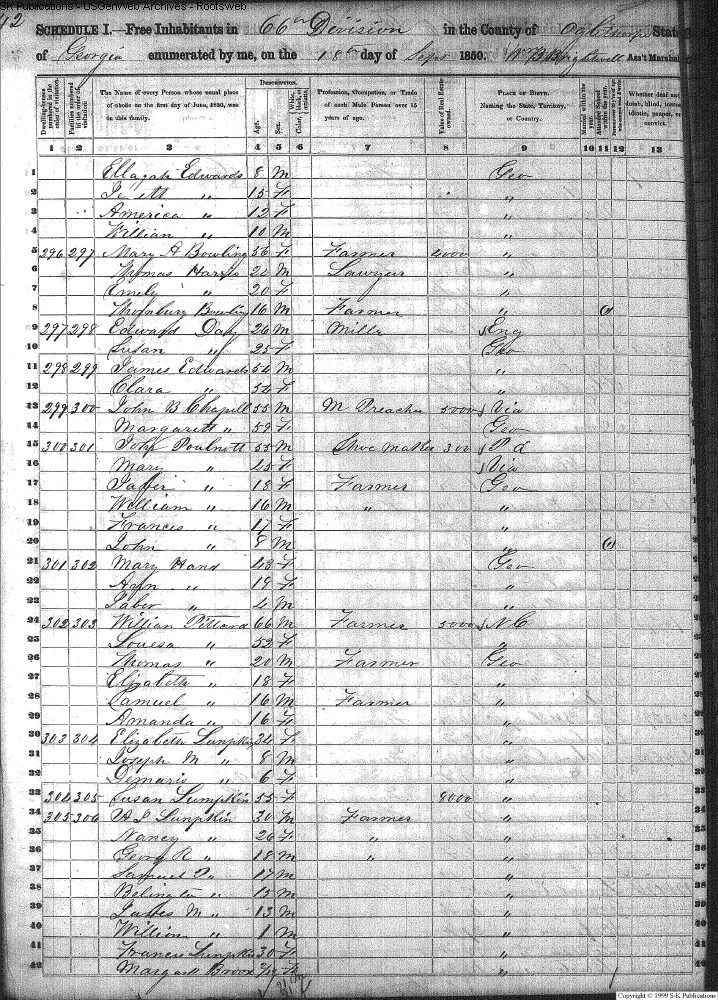 SK Publications - USGenWeb Archives - Rootsweb
42
SCHEDULE I.—Free Inhabitants in 66th Division in the County of Oglethorpe State
of Georgia enumerated by me, on the 18th day of Sept 1850. Wm B Brightwell Ass't Marshal
Dwelling-houses numbered in the order of visitation.
Families numbered in the order of visitation.
The Name of every Person whose usual place of abode on the first day of June, 1850, was in this family.
DESCRIPTION.
Age.
Sex.
Color, White, black, or mulatto.
Profession, Occupation, or Trade of each Male Person over 15 years of age.
Value of Real Estate owned.
PLACE OF BIRTH. Naming the State, Territory, or Country.
Married within the year.
Attended School within the year.
Whether deaf and dumb, blind, insane, idiotic, pauper, or convict.
1 2 3 4 5 6 7 8 9 10 11 12 13
1 Edwards 8 M Geo
2 " 15 F "
3 America " 12 F "
4 William " 10 M "
5 296 297 Mary A Bowling 56 F Farmer 4000 "
6 Thomas Harris 20 M Lawyer "
7 Emely " 20 F "
8 Thornbury Bowling 16 M Farmer " 1
9 297 298 Edward Day 26 M Mill Eng
10 Susan " 25 F Geo
11 298 299 James Edwards 54 M "
12 Clara " 54 F "
13 299 300 John B Chapell 55 M M. Preacher 5000 Via
14 Margarett " 59 F Geo
15 300 301 John Poulnott 55 M Shoe Maker 300
16 Mary " 45 F Via
17 " 18 F Farmer Geo
18 William " 16 M " "
19 Francis " 17 F "
20 John " 8 M " 1
21 301 302 Mary Hand 48 F Geo
22 Ann " 18 F "
23 " 4 M "
24 302 303 William Pittard 66 M Farmer 5000 N C
25 Louesa " 52 F
26 Thomas " 20 M Farmer Geo
27 Elizabeth " 18 F "
28 Samuel " 16 M Farmer "
29 Amanda " 16 F "
30 303 304 Elizabeth Lumpkin 34 F "
31 Joseph M " 8 M "
32 Demaris " 6 F "
33 304 305 Susan Lumpkin 55 F 8000 "
34 305 306 Lumpkin 30 M Farmer "
35 Nancy " 26 F " "
36 Georg R " 18 M " "
37 Samuel " 17 M "
38 " 15 M "
39 James M " 13 M "
40 William " 1 M "
41 Francis Lumpkin 30 F "
42 Margarett F "
Copyright © 1999 S-K Publications